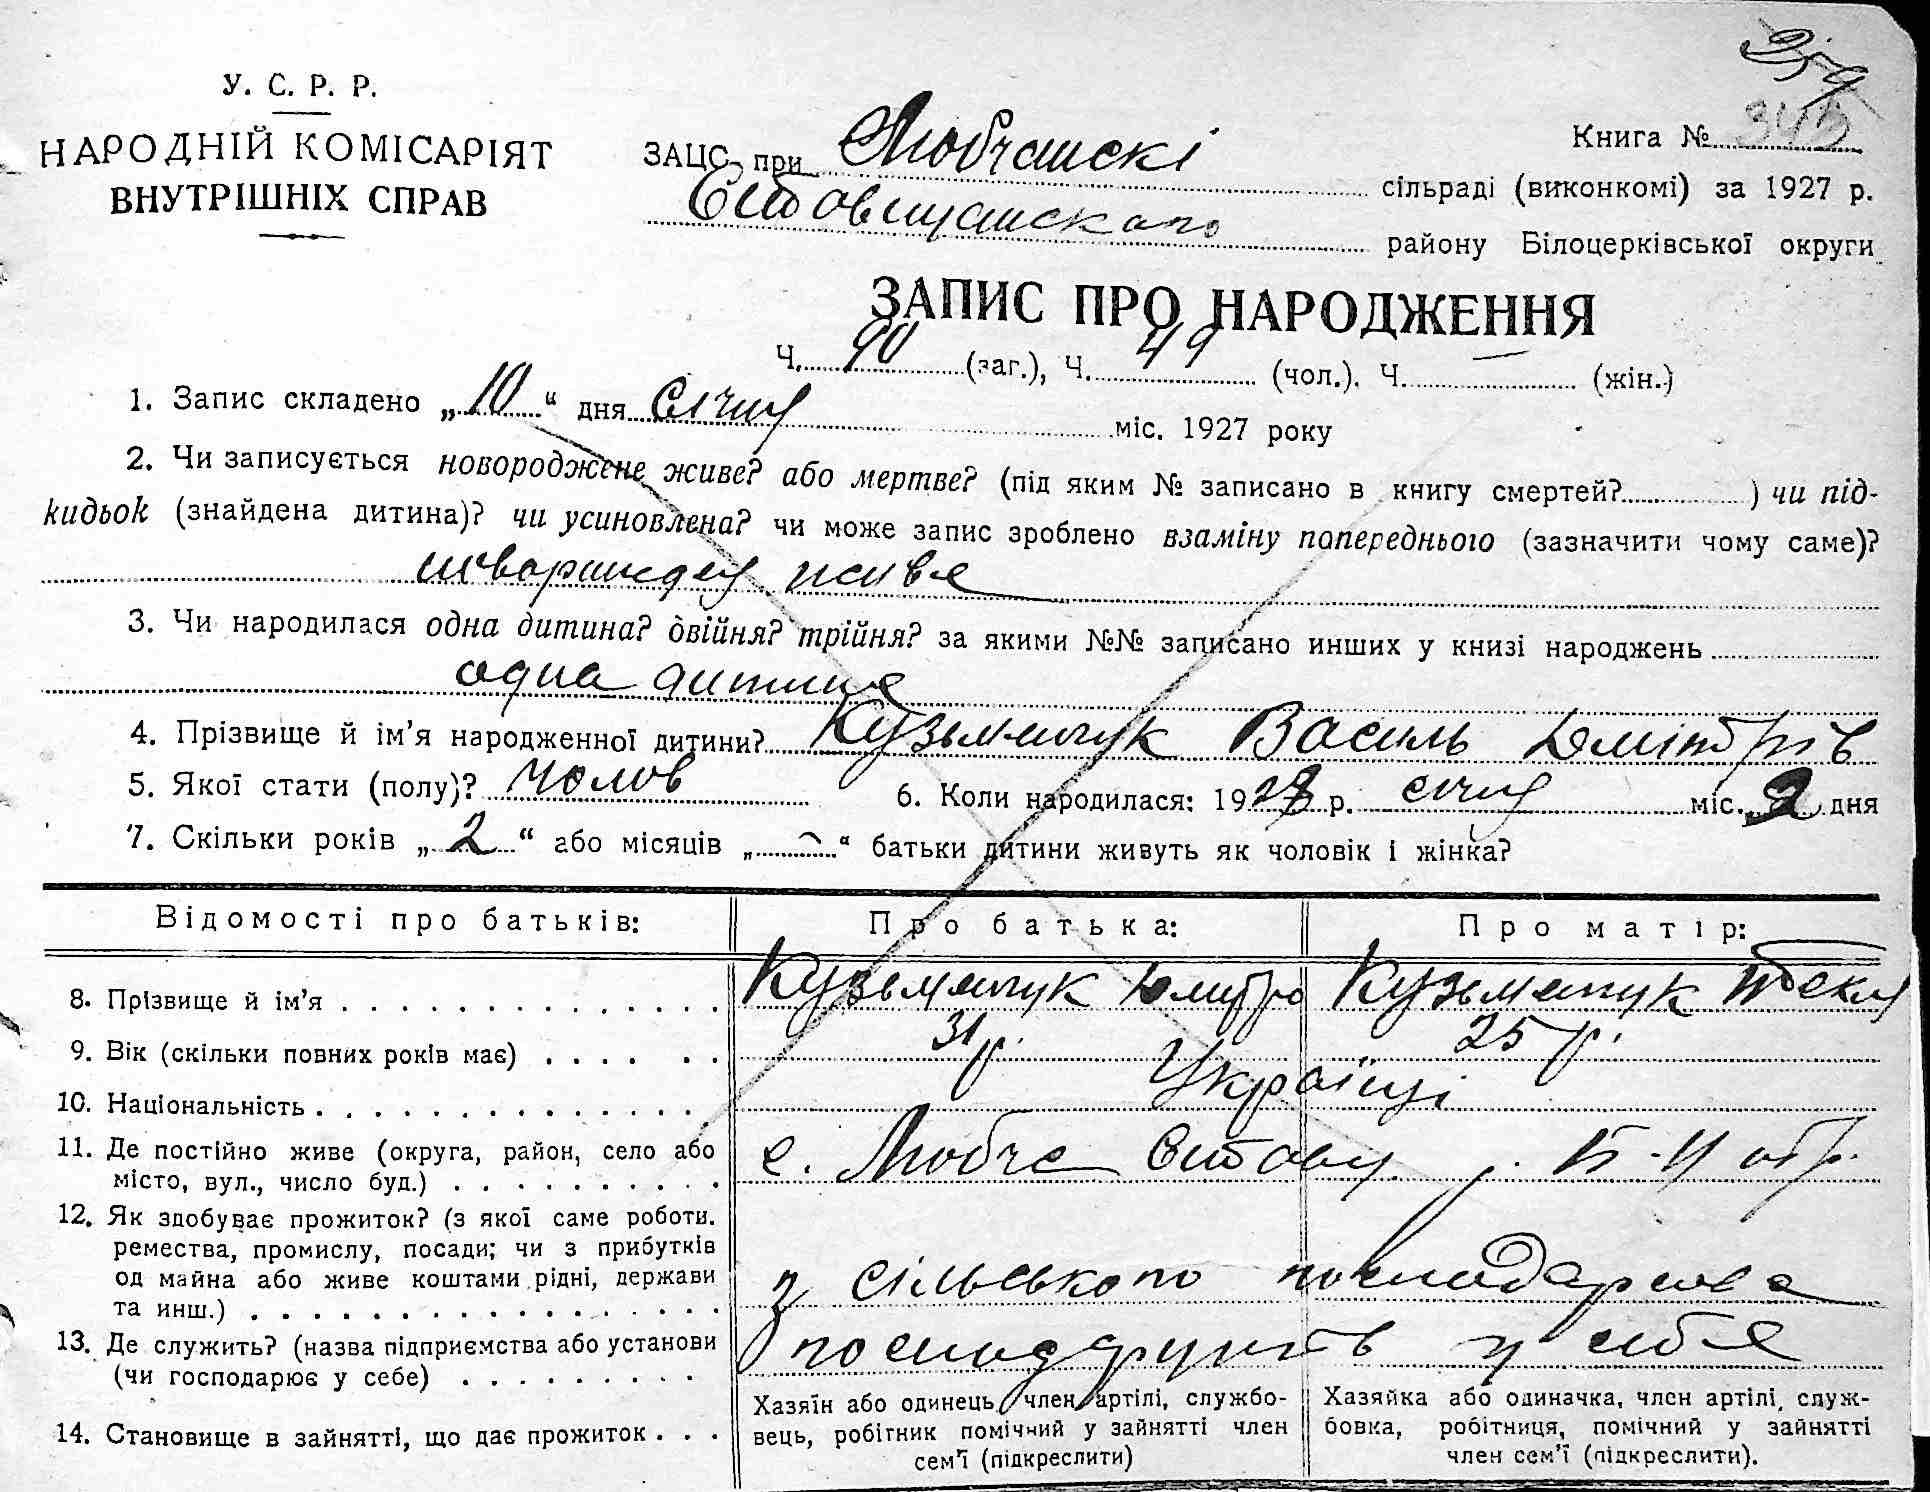 259
345
У. С. Р. Р.
НАРОДНІЙ КОМІСАРІЯТ
ВНУТРІШНІХ СПРАВ
Книга №
ЗАЦС при Любчанскі
сільраді (виконкомі) за 1927 р.
Ставищанского
району Білоцерківської округи
ЗАПИС ПРО НАРОДЖЕННЯ
Ч. 90 (заг.), Ч. 49 (чол.). Ч. — (жін.)
1. Запис складено „10“ дня січня міс. 1927 року
2. Чи записується новороджене живе? або мертве? (під яким № записано в книгу смертей? ) чи під-
кидьок (знайдена дитина)? чи усиновлена? чи може запис зроблено взаміну попереднього (зазначити чому саме)?
живе
3. Чи народилася одна дитина? двійня? трійня? за якими №№ записано инших у книзі народжень
одна дитина
4. Прізвище й ім’я народженної дитини? Кузьменчук Василь Дмітрів
5. Якої стати (полу)? чолов 6. Коли народилася: 1927 р. січня міс. 2 дня
7. Скільки років „2“ або місяців „—“ батьки дитини живуть як чоловік і жінка?
Відомості про батьків: Про батька: Про матір:
8. Прізвище й ім’я Кузьменчук Дмитро Кузьменчук Текля
9. Вік (скільки повних років має) 31 р. 25 р.
10. Національність Українці
11. Де постійно живе (округа, район, село або
місто, вул., число буд.)
с. Любча Ставищ. р. Б-Ц окр.
12. Як здобуває прожиток? (з якої саме роботи.
ремества, промислу, посади; чи з прибутків
од майна або живе коштами рідні, держави
та инш.)
з сільського господарства
13. Де служить? (назва підприємства або установи
(чи господарює у себе)
господарують у себе
14. Становище в зайнятті, що дає прожиток
Хазяїн або одинець, член артілі, службо-
вець, робітник помічний у зайнятті член
сем’ї (підкреслити)
Хазяйка або одиначка, член артілі, служ-
бовка, робітниця, помічний у зайнятті
член сем’ї (підкреслити).